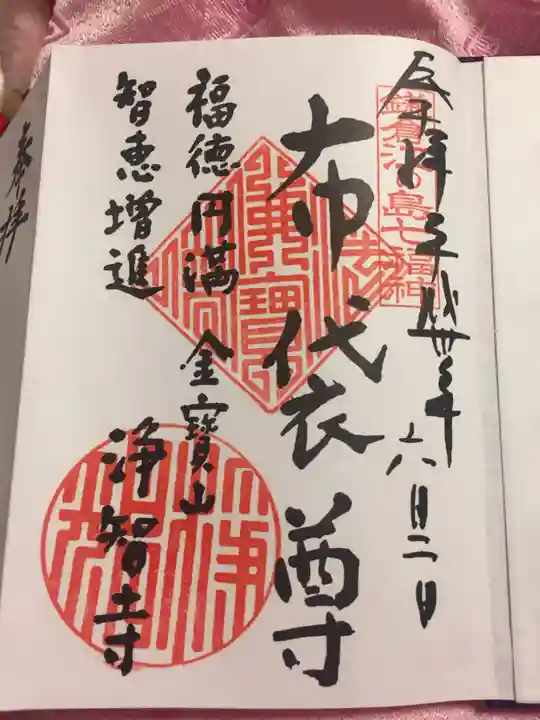 奉拝 平成卅年六月二日
鎌倉江ノ島七福神
布袋尊
福徳円満
智恵増進
金寶山
浄智寺
奉拝